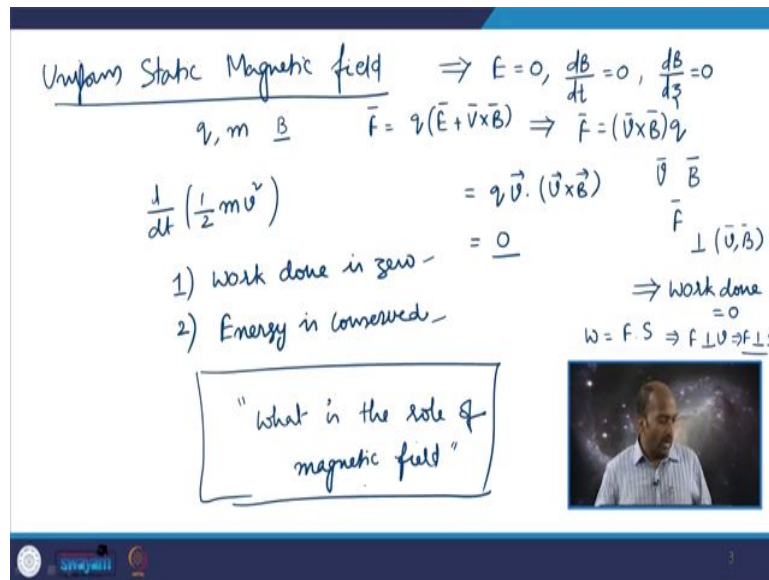 Uniform Static Magnetic field ⇒ E = 0, dB/dt = 0, dB/dz = 0
q, m B F̄ = q(Ē + V̄×B̄) ⇒ F̄ = (v̄×B̄)q
d/dt (1/2 mv²) = q v⃗. (v⃗×B⃗) v̄ B̄
F̄
= 0 ⊥ (v̄, B̄)
1) Work done is zero- ⇒ Work done
= 0
2) Energy is conserved- W = F.S ⇒ F⊥v ⇒ F⊥S
"What is the role of
magnetic field"
swayam 3